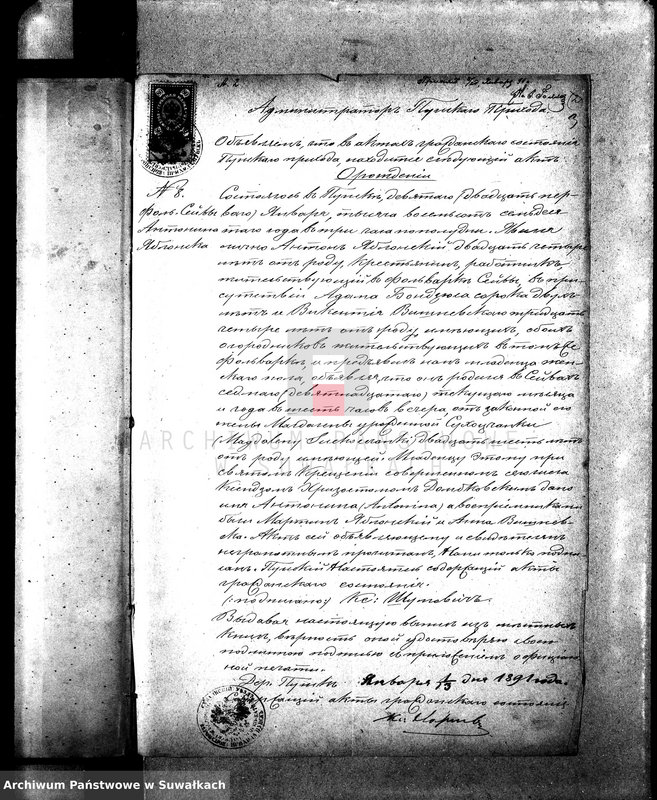 Администраторъ Пунскаго Прихода
Объявляетъ, что въ актахъ гражданскаго состоянія
Пунскаго прихода находится слѣдующій актъ:
О рожденіи
№ 8.
Фольв. Сейвы
Антонина
Яблонска
Состоялось въ Пунскѣ, девятаго (двадцать пер-
ваго) Января, тысяча восемьсотъ семьдеся
таго года въ три часа пополудни. Явился
лично Антонъ Яблонскій двадцать четыре
лѣтъ отъ роду, крестьянинъ, работникъ
жительствующій въ фольваркѣ Сейвы, въ при-
сутствіи Адама сорока двухъ
лѣтъ и Викентія Вишневскаго тридцать
четыре лѣтъ отъ роду имѣющихъ, обоихъ
огородниковъ жительствующихъ въ томъ же
Фольваркѣ, и предъявилъ намъ младенца жен-
скаго пола, объявляя, что онъ родился въ Сейвахъ
седьмаго (девятнадцатаго) текущаго мѣсяца
и года въ шесть часовъ вечера, отъ законной его
жены Магдалены урожденной
Magdaleny двадцать шесть лѣтъ
отъ роду имѣющей. Младенцу этому при
святомъ Крещеніи совершенномъ сего числа
Ксендзомъ Хризостомомъ дано
имя Антонина (Antonina) а воспріемниками
были Мартинъ Яблонскій и Анна Вишнев-
ска. Актъ сей объявляющему и свидѣтелямъ
неграмотнымъ прочитанъ, Нами только подпи
санъ. Пунскій Настоятель содержащій акты
гражданскаго состоянія.
(подписано) Кс:
Выдавая настоящую выпись изъ
книгъ, вѣрность оной удостовѣряю своею
подписью съ приложеніемъ оффиціаль
ной печати.
Дер. Пунскъ Января 1/13 дня 1891 года.
акты гражданскаго состоянія
ARCHIWUM
Archiwum Państwowe w Suwałkach